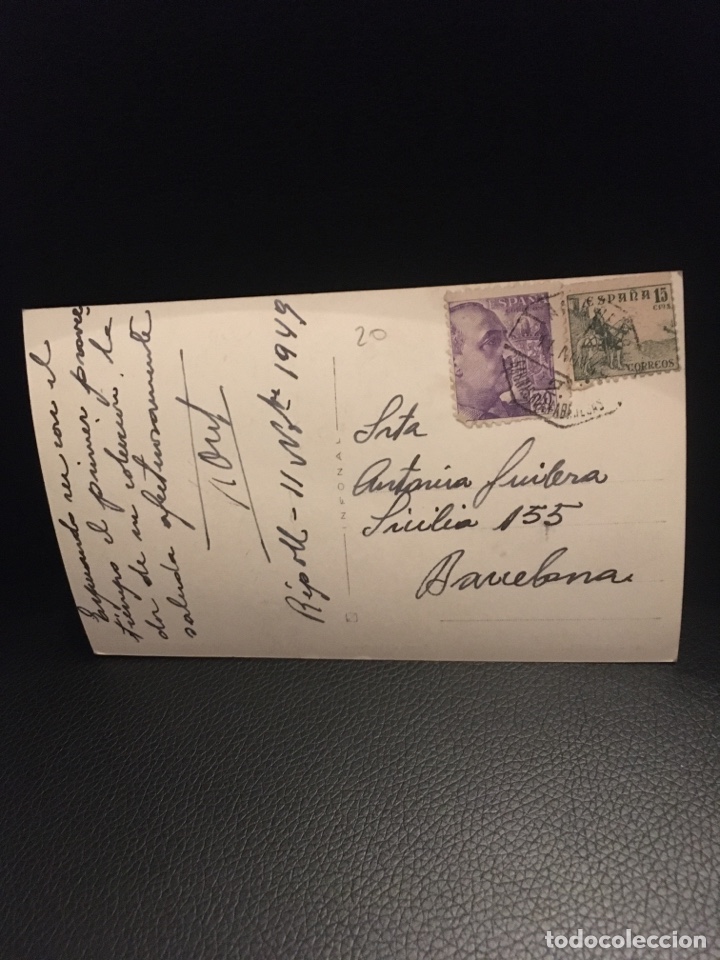 Esperando ser con el
tiempo el primer provee
dor de su colección. la
saluda afectuosamente
Ripoll - 11 Nbre 1949
20
INFONAL
ESPAÑA
ESPAÑA 15
CTMS.
CORREOS
Srta
Antonia Guilera
Sicilia 155
Barcelona
todocoleccion